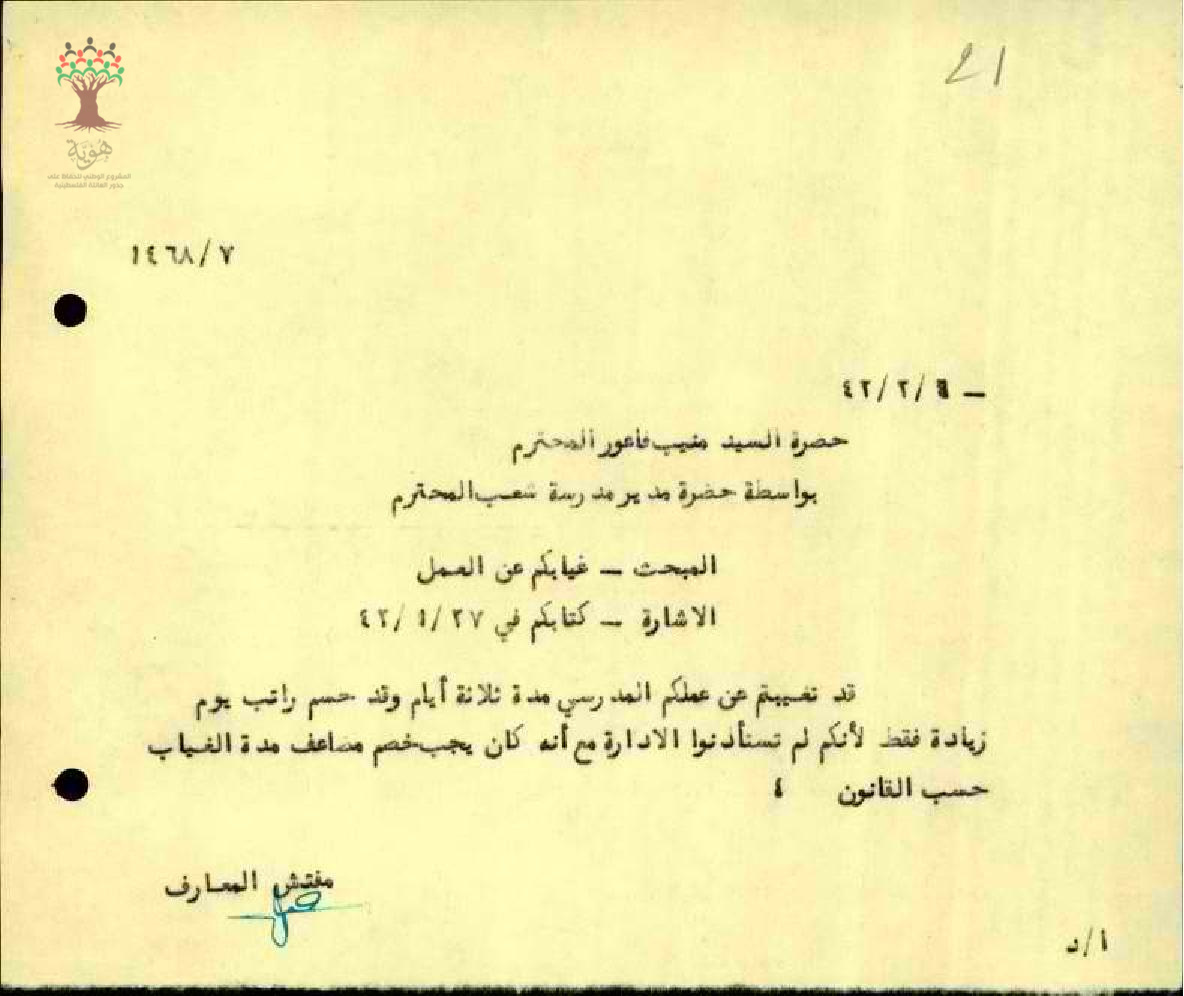 هوية
المشروع الوطني للحفاظ على
جذور العائلة الفلسطينية
٢١
١٤٦٨/٧
ـ ٤٢/٢/٤
حضرة السيد منيب فاعور المحترم
بواسطة حضرة مدير مدرسة شعب المحترم
المبحث ـ غيابكم عن العمل
الاشارة ـ كتابكم في ٤٢/١/٢٧
قد تغيبتم عن عملكم المدرسي مدة ثلاثة أيام وقد حسم راتب يوم
زيادة فقط لأنكم لم تستأذنوا الادارة مع أنه كان يجب خصم مضاعف مدة الغياب
حسب القانون ٤
مفتش المعارف
ا/د